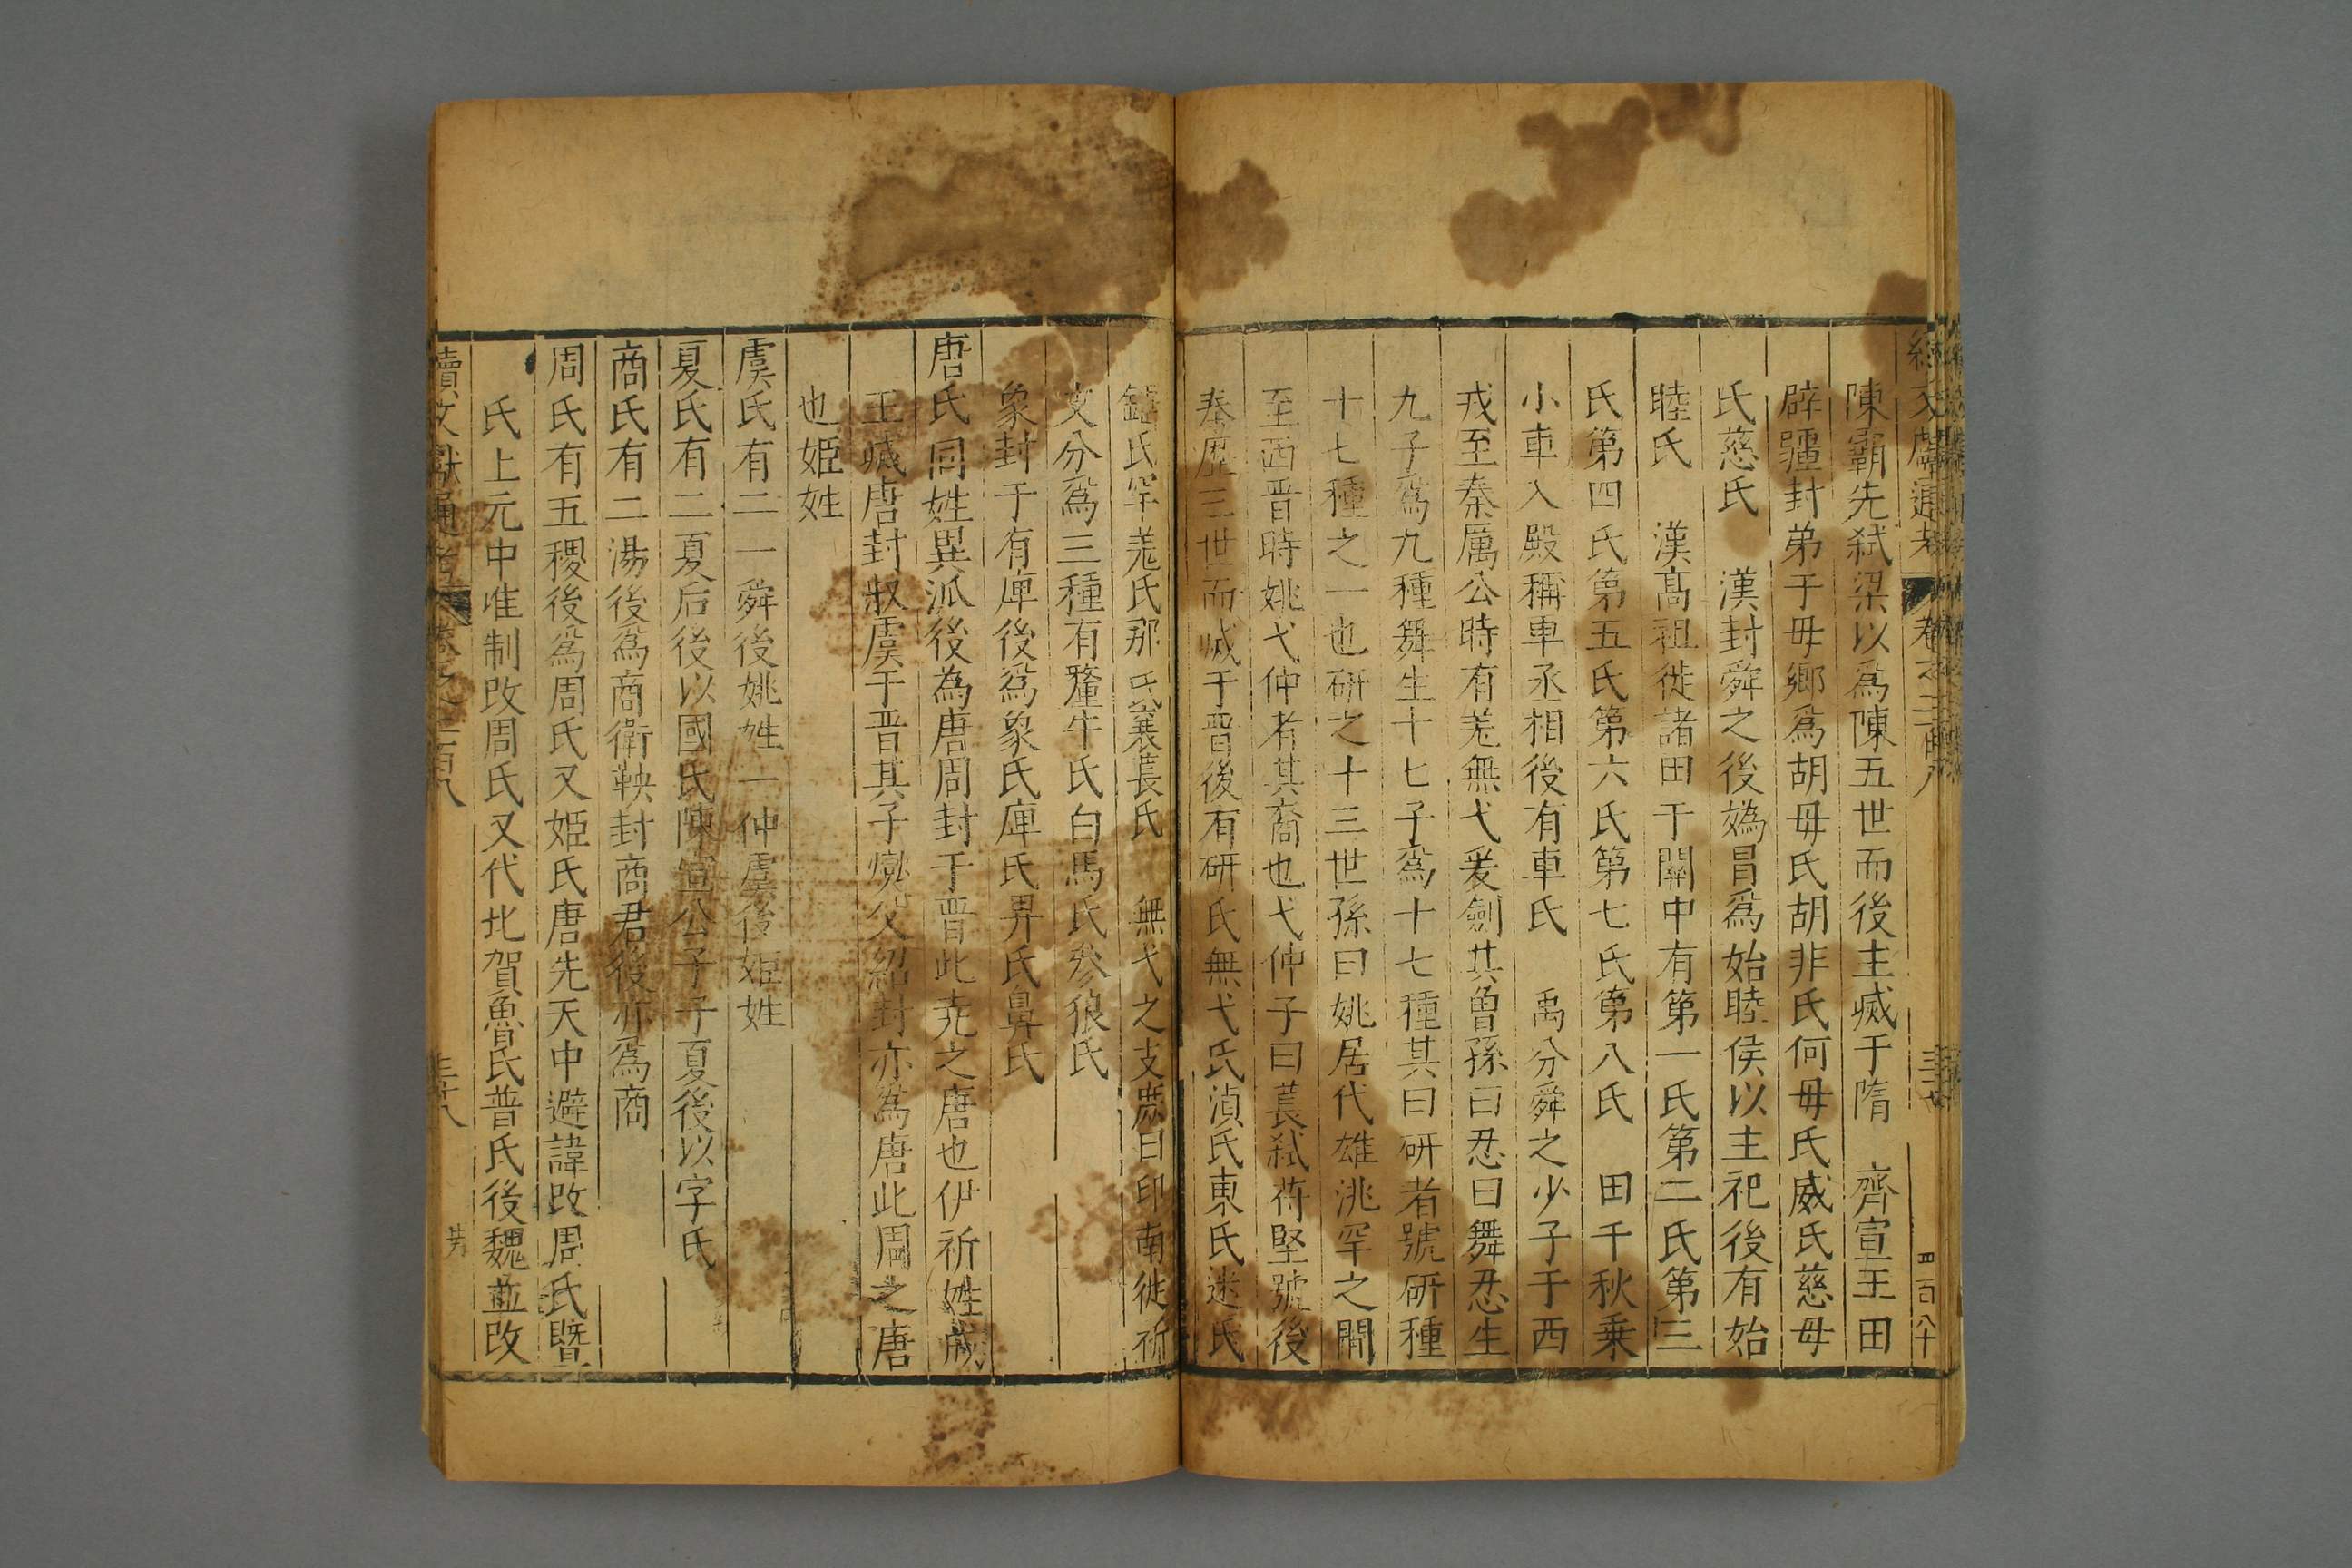 陳霸先弒梁以爲陳五世而後主滅于隋　齊宣王田
辟疆封弟于毋鄉爲胡毋氏胡非氏何毋氏威氏慈毋
氏慈氏　漢封舜之後嬀昌爲始睦侯以主祀後有始
睦氏　漢髙祖徙諸田于關中有第一氏第二氏第三
氏第四氏第五氏第六氏第七氏第八氏　田千秋乗
小車入殿稱車丞相後有車氏　禹分舜之少子于西
戎至秦厲公時有羌無弋爰劍其曾孫曰忍曰舞忍生
九子爲九種舞生十七子爲十七種其曰研者號研種
十七種之一也研之十三世孫曰姚居代雄洮罕之間
至西晋時姚弋仲者其裔也弋仲子曰萇弒苻堅號後
秦歴三世而滅于晋後有研氏無弋氏湞氏東氏迷氏
鐘氏罕羗氏那氏襄萇氏　無弋之支庶曰印南徙祈
支分爲三種有犛牛氏白馬氏參狼氏
象封于有庳後爲象氏庳氏畀氏鼻氏
唐氏同姓異派後為唐周封于晋此尭之唐也伊祈姓成
王滅唐封叔虞于晋其子燮父紹封亦為唐此周之唐
也姬姓
虞氏有二一舜後姚姓一仲虞後姬姓
夏氏有二夏后後以國氏陳宣公子子夏後以字氏
商氏有二湯後爲商衛鞅封商君後亦爲商
周氏有五稷後爲周氏又姬氏唐先天中避諱改周氏暨
氏上元中准制改周氏又代北賀魯氏普氏後魏並改
續文獻通考　卷之二百八　三十八